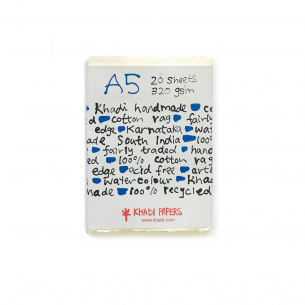 A5 20 sheets
320 gsm
Khadi handmade co
d cotton rag fairl
edge Karnataka wat
ade South India 100%
fairly traded hand
ed 100% cotton rag
edge acid free arti
water-colour Khad
made 100% recycled
KHADI PAPERS
www.khadi.com